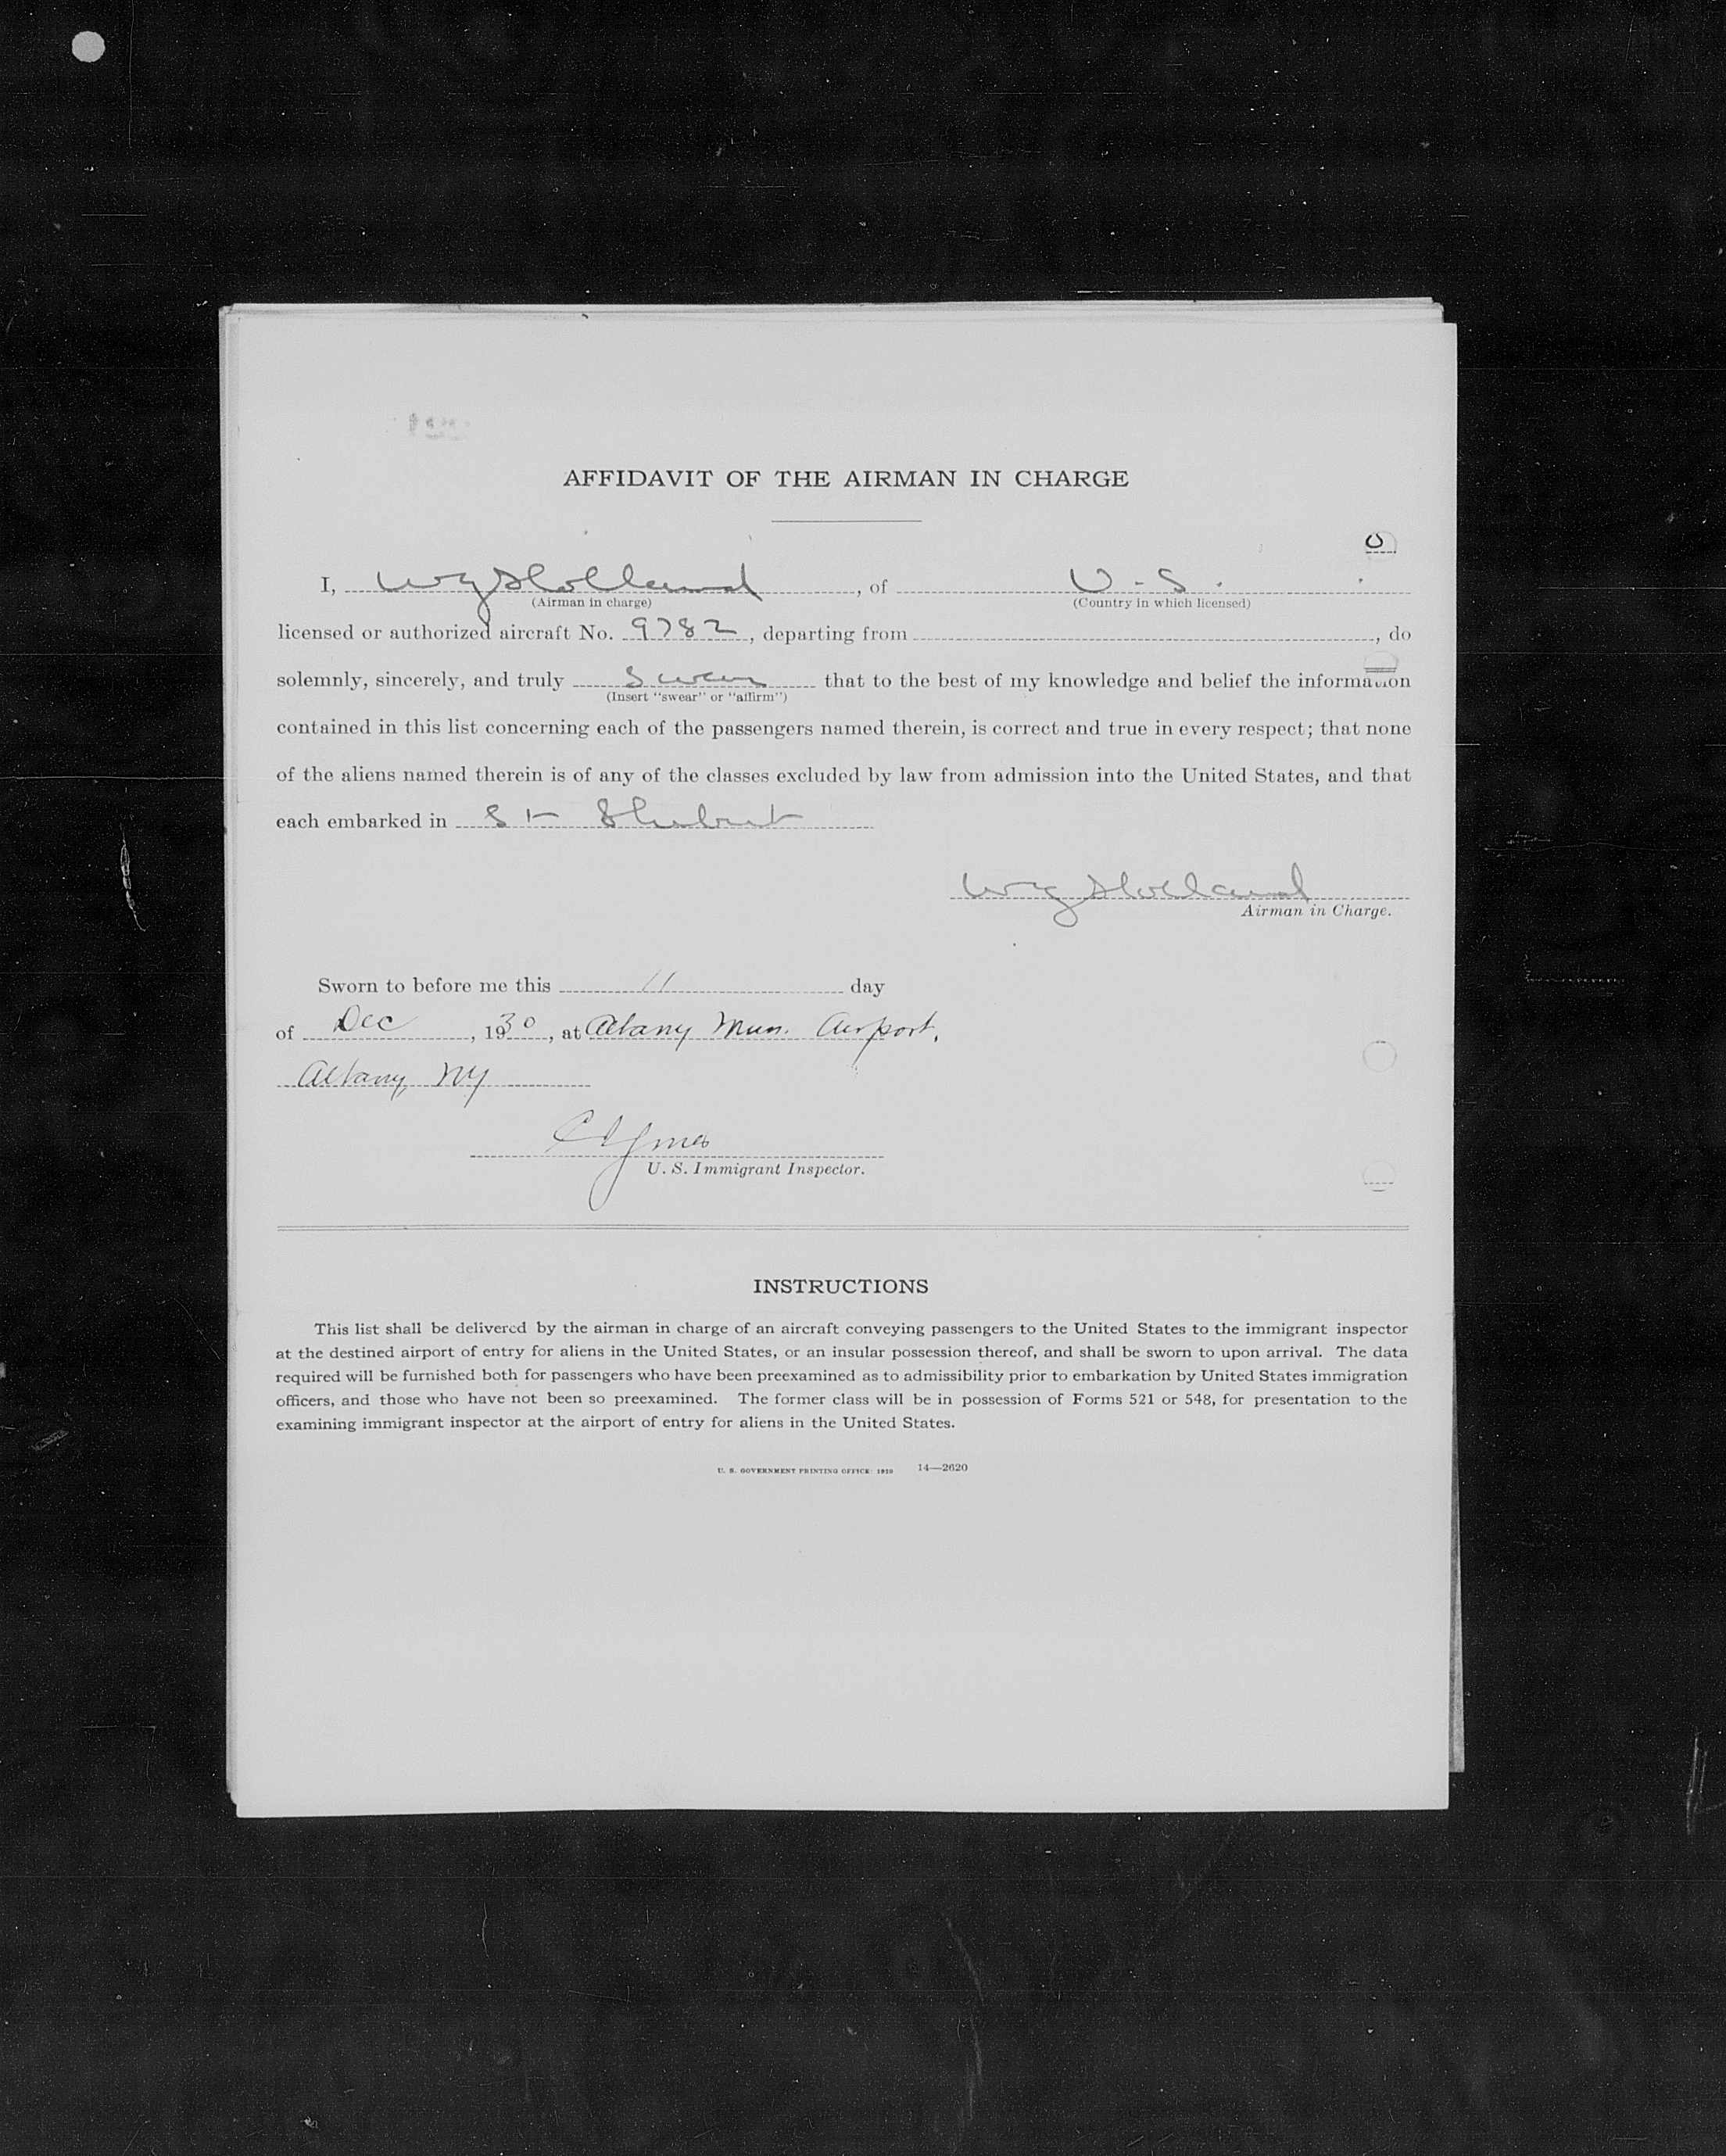 AFFIDAVIT OF THE AIRMAN IN CHARGE
I, W G Holland, of U.S.
(Airman in charge) (Country in which licensed)
licensed or authorized aircraft No. 9782, departing from , do
solemnly, sincerely, and truly swear that to the best of my knowledge and belief the information
(Insert "swear" or "affirm")
contained in this list concerning each of the passengers named therein, is correct and true in every respect; that none
of the aliens named therein is of any of the classes excluded by law from admission into the United States, and that
each embarked in St Hubert
W G Holland
Airman in Charge.
Sworn to before me this 11 day
of Dec, 1930, at Albany Mun. Airport,
Albany NY
U. S. Immigrant Inspector.
INSTRUCTIONS
This list shall be delivered by the airman in charge of an aircraft conveying passengers to the United States to the immigrant inspector
at the destined airport of entry for aliens in the United States, or an insular possession thereof, and shall be sworn to upon arrival. The data
required will be furnished both for passengers who have been preexamined as to admissibility prior to embarkation by United States immigration
officers, and those who have not been so preexamined. The former class will be in possession of Forms 521 or 548, for presentation to the
examining immigrant inspector at the airport of entry for aliens in the United States.
U. S. GOVERNMENT PRINTING OFFICE: 14—2620